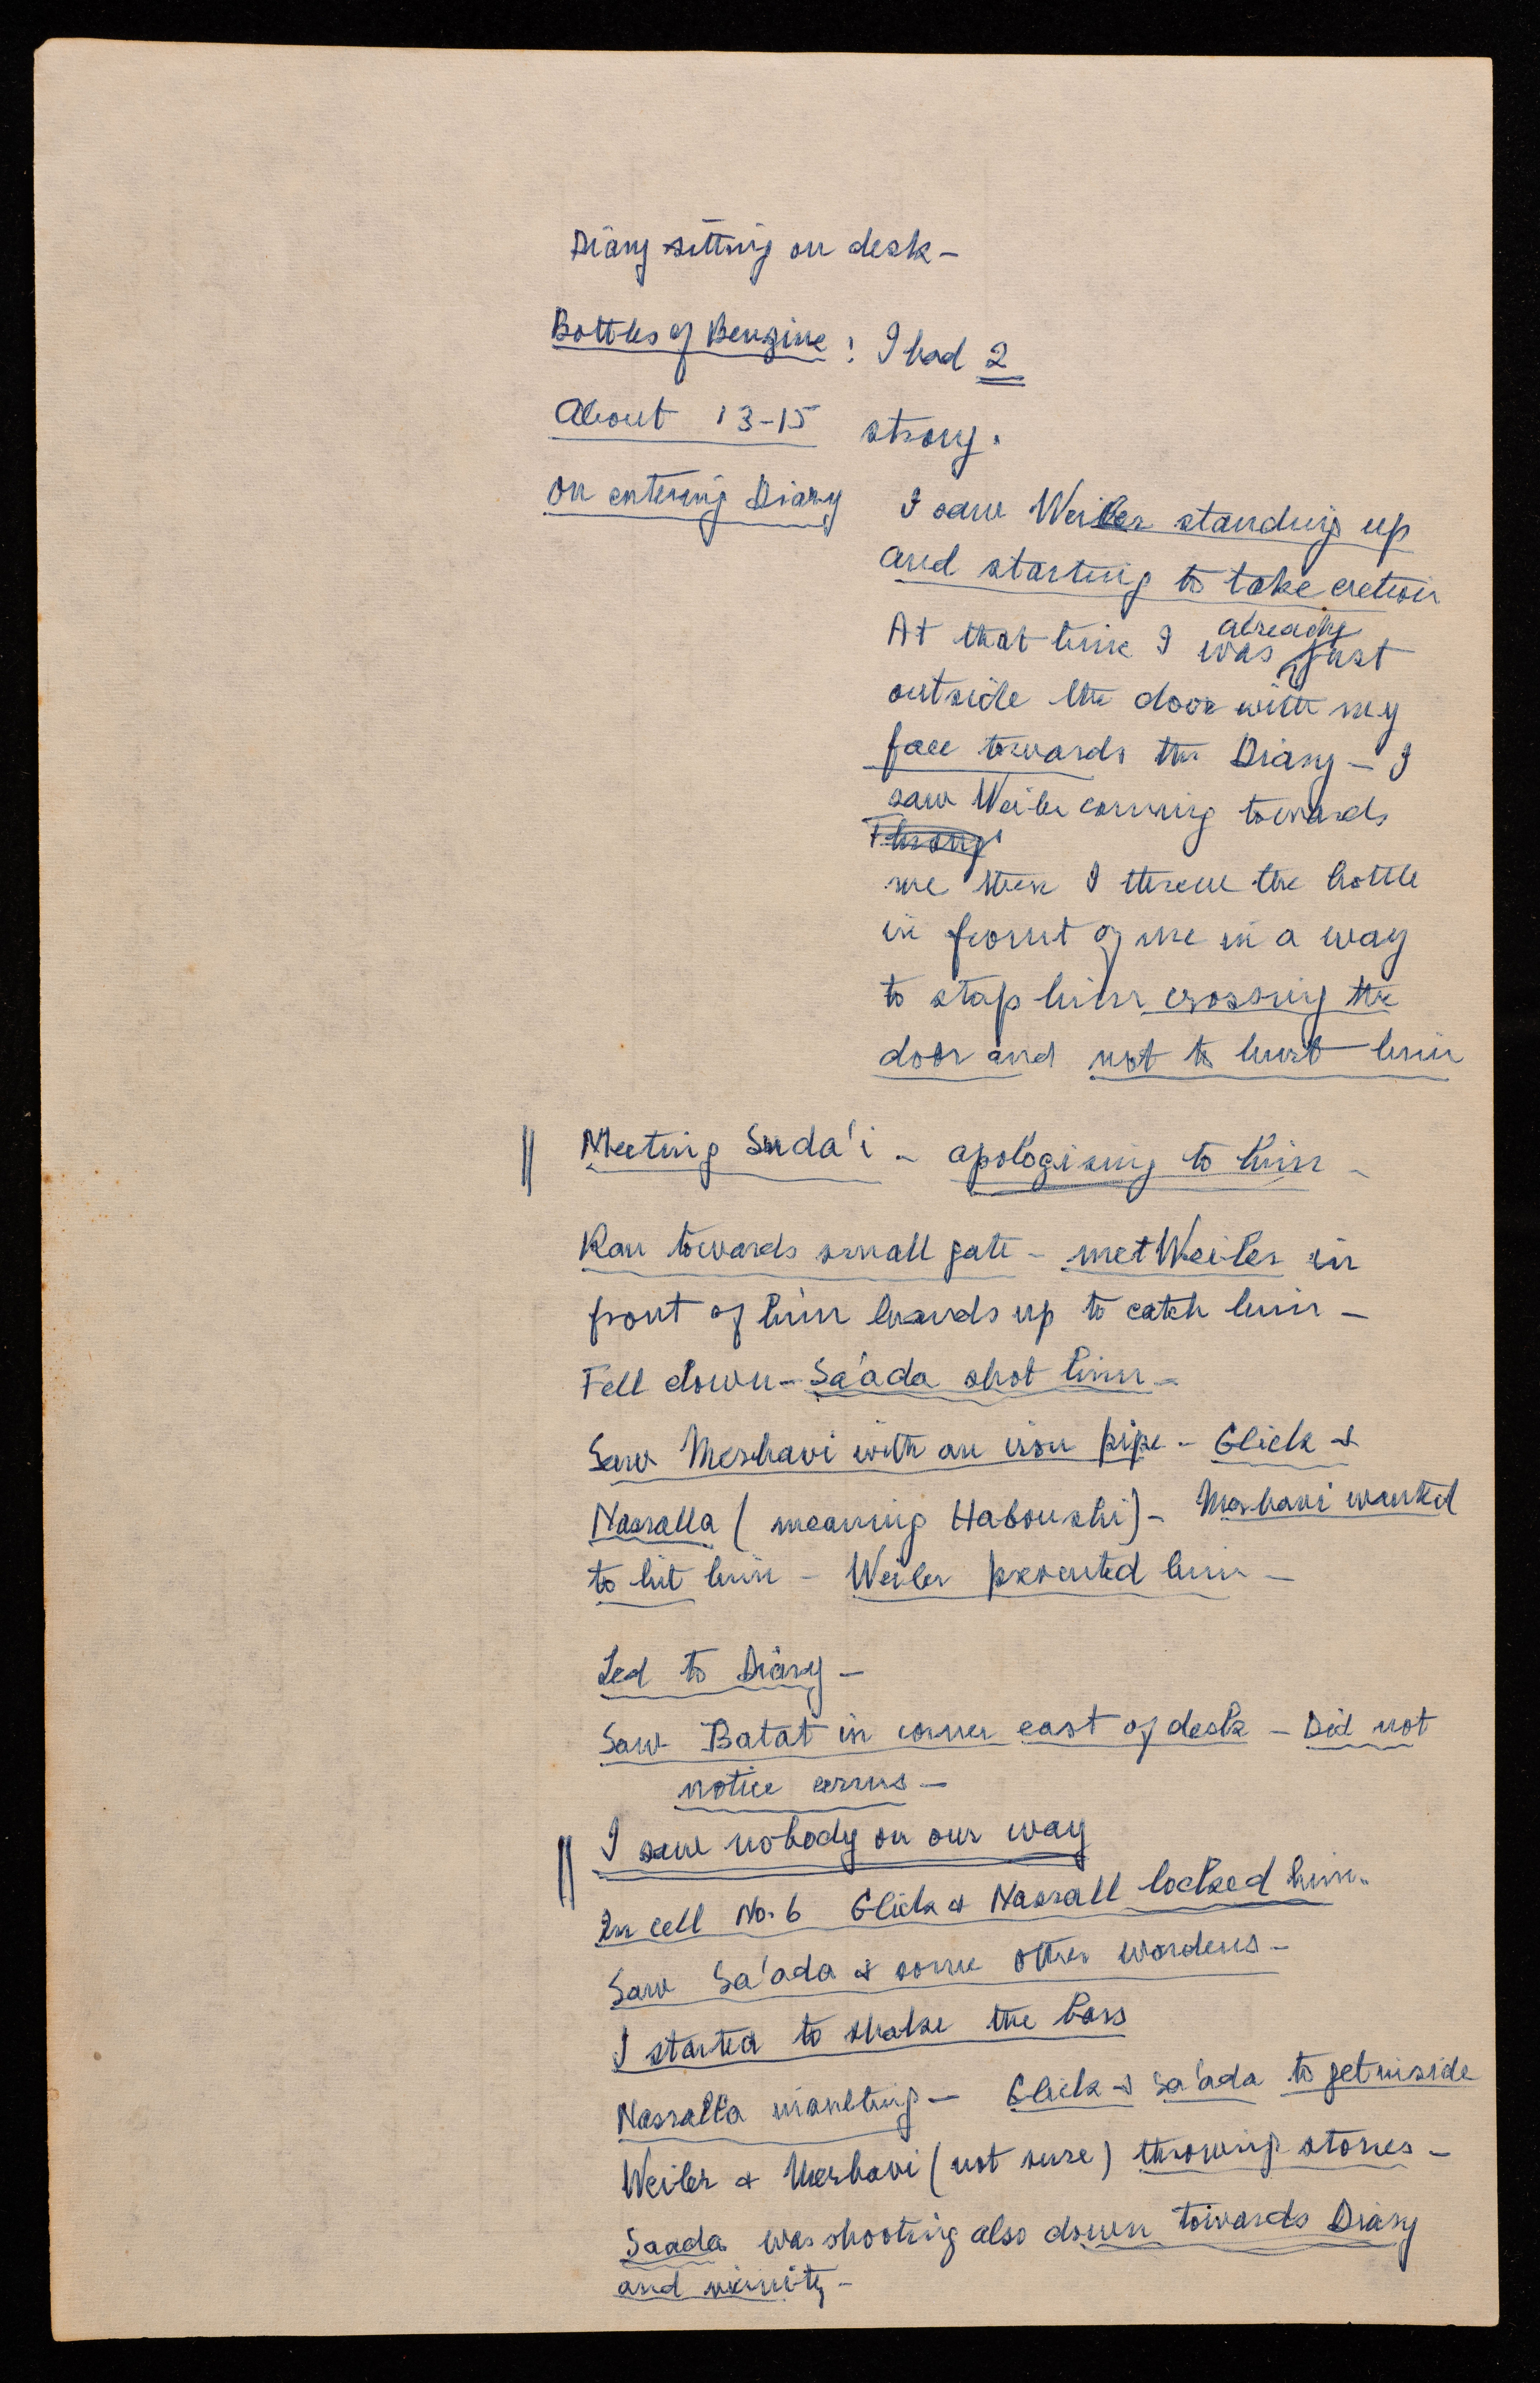 Diary sitting on desk -
Bottles of Benzine : I had 2
About 13-15 strong.
On entering Diary I saw Weiler standing up
and starting to take action
At that time I was already just
outside the door with my
face towards the Diary - I
saw Weiler coming towards
me then I threw the bottle
in front of me in a way
to stop him crossing the
door and not to hurt him
|| Meeting Suda'i - apologising to him -
Ran towards small gate - met Weiler in
front of him hands up to catch him -
Fell down - Sa'ada shot him -
Saw Merhavi with an iron pipe - Glick &
Nasralla ( meaning Haboushi) - Merhavi wanted
to hit him - Weiler prevented him -
Led to Diary -
Saw Batat in corner east of desk - Did not
notice arms -
|| I saw nobody on our way
In cell No. 6 Glick & Nasrall locked him.
Saw Sa'ada & some other wardens -
I started to shake the bars
Nasralla insulting - Glick & Sa'ada to get inside
Weiler & Merhavi (not sure) throwing stones -
Saada was shooting also down towards Diary
and vicinity -